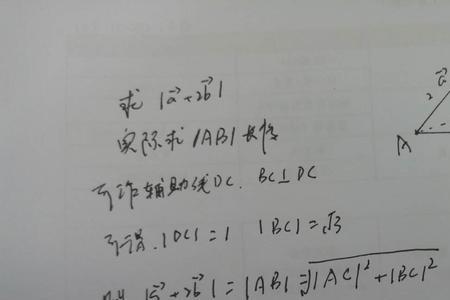 求 |a⃗+2b⃗|
实际求|AB|长度
可作辅助线DC. BC⊥DC
可得.|DC|=1 |BC|=√3
|a⃗+2b⃗|=|AB|=√|AC|²+|BC|²
a⃗
2
A